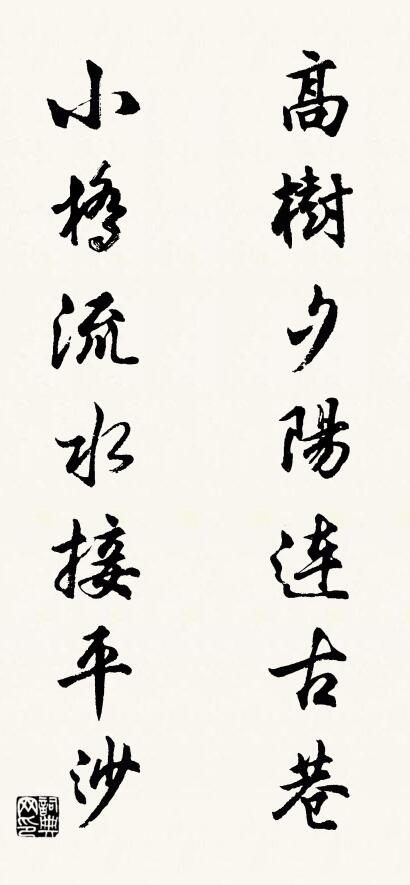 高樹夕陽連古巷
小橋流水接平沙
詞典網印